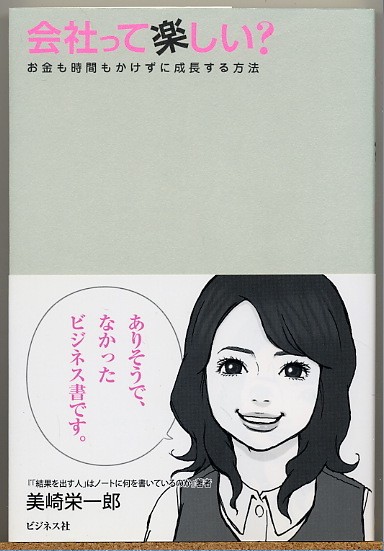 会社って楽しい?
お金も時間もかけずに成長する方法
ありそうで、
なかった
ビジネス書です。
『「結果を出す人」はノートに何を書いているのか』著者
美崎栄一郎
ビジネス社